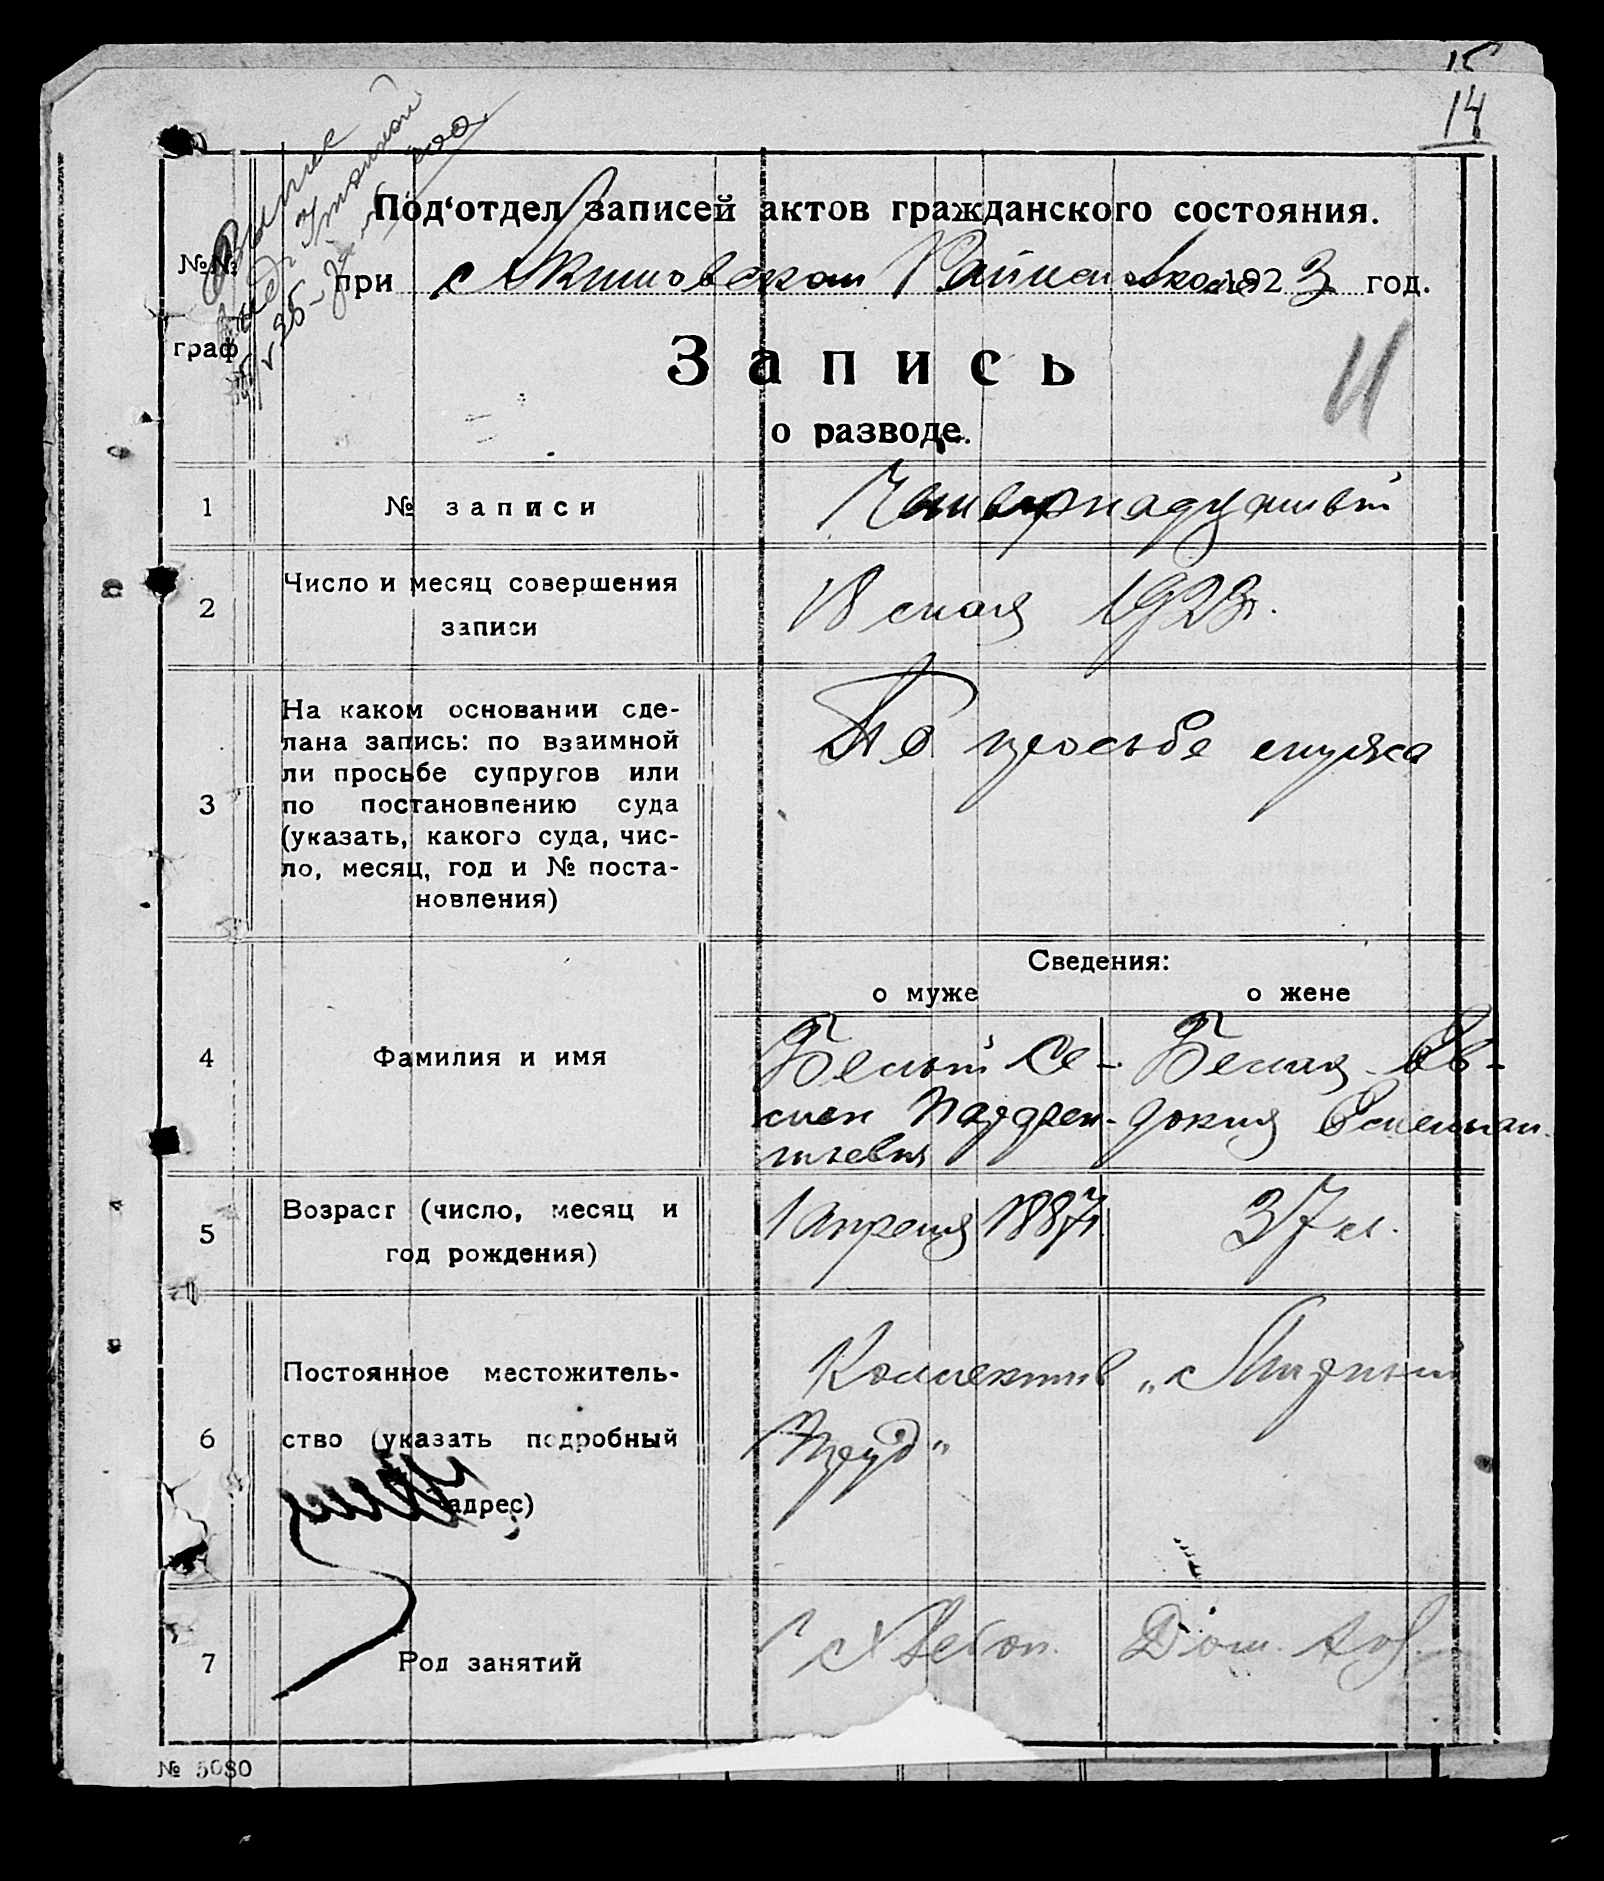 15
14
Под‘отдел записей актов гражданского состояния.
№№
граф
при Акимовском Райисполкоме 1923 год.
Запись
о разводе.
1 № записи Четырнадцатый
2 Число и месяц совершения
записи
18 мая 1923г.
3 На каком основании сде-
лана запись: по взаимной
ли просьбе супругов или
по постановлению суда
(указать, какого суда, чис-
ло, месяц, год и № поста-
новления)
По просьбе мужа
Сведения:
о муже о жене
4 Фамилия и имя
Белый Се- Белая Ев-
мен докия
5 Возраст (число, месяц и
год рождения)
1 апреля 1887г. 37 л.
6 Постоянное местожитель-
ство (указать подробный
адрес)
Коллектив „Мирный
Труд“
7 Род занятий
Дом. хоз.
№ 5080